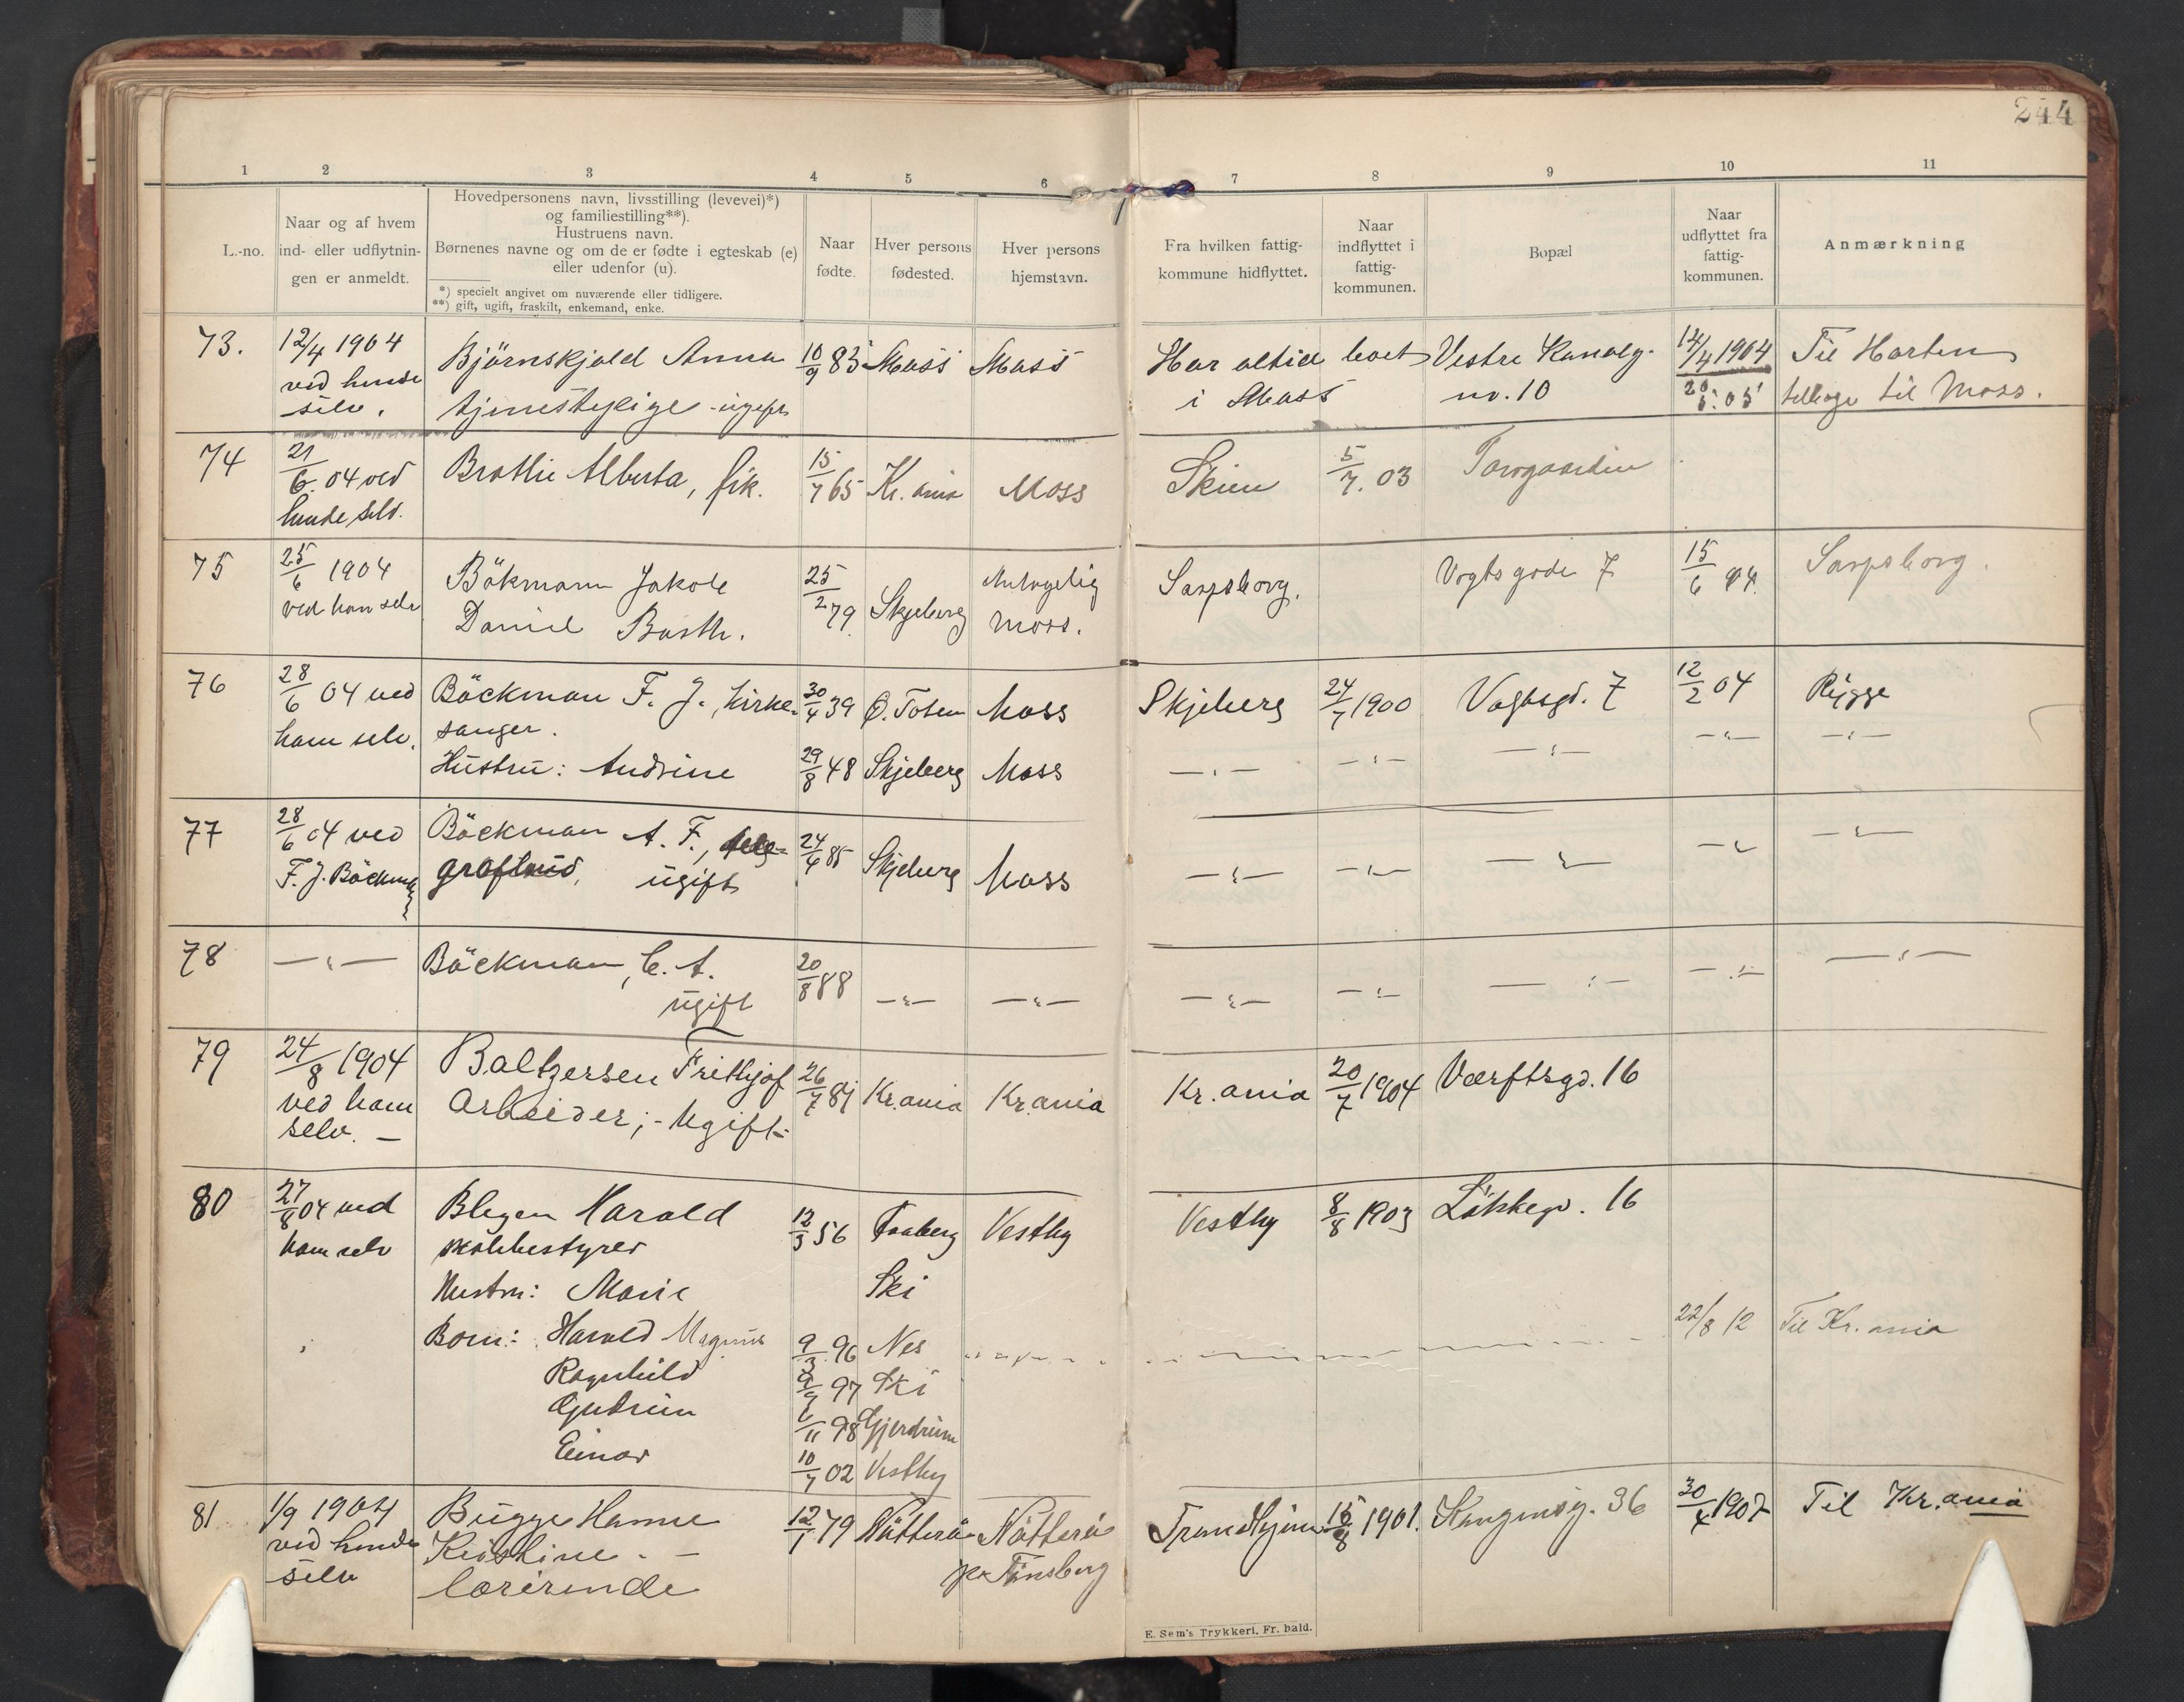 244
1 2 3 4 5 6 7 8 9 10 11
L.-no.
Naar og af hvem
ind- eller udflytnin-
gen er anmeldt.
Hovedpersonens navn, livsstilling (levevei)*)
og familiestilling**).
Hustruens navn.
Børnenes navne og om de er fødte i egteskab (e)
eller udenfor (u).
*) specielt angivet om nuværende eller tidligere.
**) gift, ugift, fraskilt, enkemand, enke.
Naar
fødte.
Hver persons
fødested.
Hver persons
hjemstavn.
Fra hvilken fattig-
kommune hidflyttet.
Naar
indflyttet i
fattig-
kommunen.
Bopæl
Naar
udflyttet fra
fattig-
kommunen.
Anmærkning
73. 12/4 1904 Björnskjold Anna 10/9 83 Moss Moss Har altid boet Vestre Kanalg. 14/4 1904 Til Horten
ved hende
selv. tjenestepige - ugift i Moss nr. 10 20/5.05 tilbage til Moss.
74 21/6.04 ved Alberta, frk. 15/7 65 Kr.ania Moss Skien 5/7.03 Torvgaarden
hende selv.
75 25/6 1904 Bökmann Jakob 25/2 79 Skjeberg Antagelig Sarpsborg. Vogtsgade 7 15/6 04 Sarpsborg.
ved ham selv Daniel Barth. Moss.
76 28/6 04 ved Böckman F. J., kirke- 30/4 39 Ø. Toten Moss Skjeberg 24/7 1900 Vogtsgd. 7 12/2 04 Rygge
ham selv. sanger.
Hustru: Andrine 29/8 48 Skjeberg Moss —„— —„— —„— —„— —„—
77 28/6 04 ved Böckman A. F., tele- 24/4 85 Skjeberg Moss —„— —„— —„— —„— —„—
F. J. Böckman ugift
78 —„— Böckman, C. A. 20/8 88 —„— —„— —„— —„— —„— —„— —„—
ugift
79 24/8 1904 Baltzersen Frithjof 26/7 81 Kr.ania Kr.ania Kr.ania 20/7 1904 Værftsgd. 16
ved ham Arbeider; - Ugift -
selv. —
80 27/8 04 ved Blegen Harald 12/3 56 Faaberg Vestby Vestby 8/8 1903 16
ham selv
Hustru: Marie Ski
Born: Harald Magnus 9/3 96 Nes 22/8 12 Til Kr.ania
Ragnhild 97 Ski
Gudrun 6/11 98 Gjerdrum
Einar 10/7 02 Vestby
81 1/9 1904 Bugge Hanne 12/1 79 Nötterö Nötterö Trondhjem 15/8 1901. Kongensg. 36 30/4 1907 Til Kr.ania
ved hende Kristine. — pr. Tönsberg
selv lærerinde
E. Sem's Trykkeri, Fr. hald.